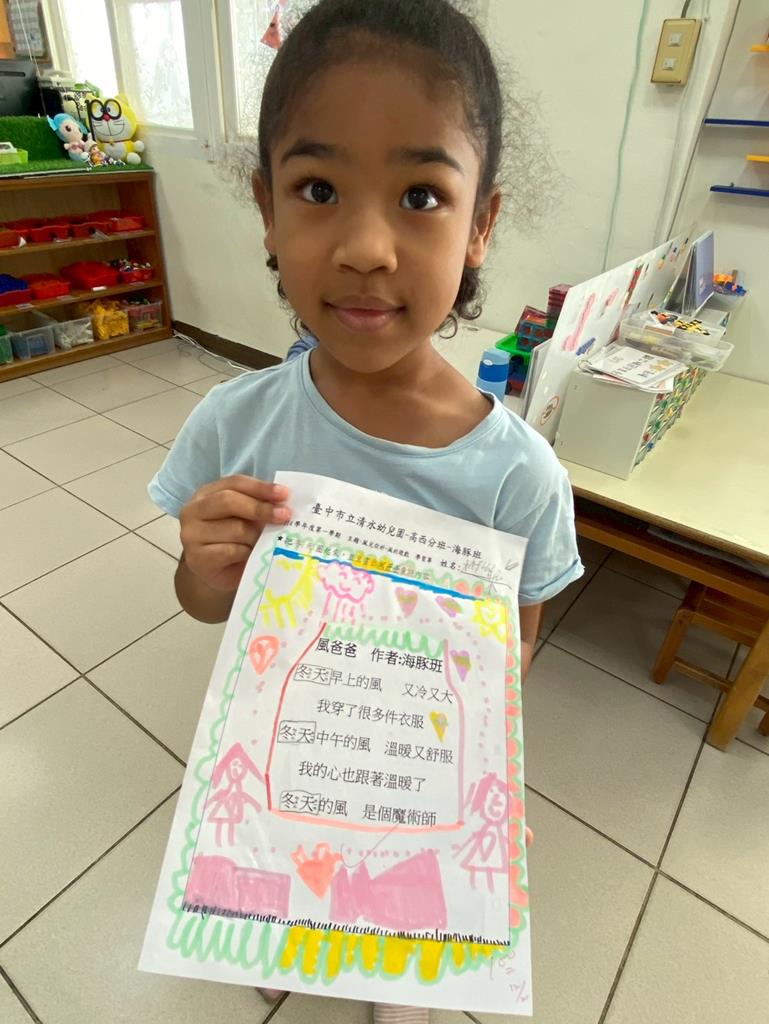 臺中市立清水幼兒園-高西分班-海豚班
學年度第一學期 學習單 姓名:
風爸爸 作者:海豚班
冬天早上的風 又冷又大
我穿了很多件衣服
冬天中午的風 溫暖又舒服
我的心也跟著溫暖了
冬天的風 是個魔術師